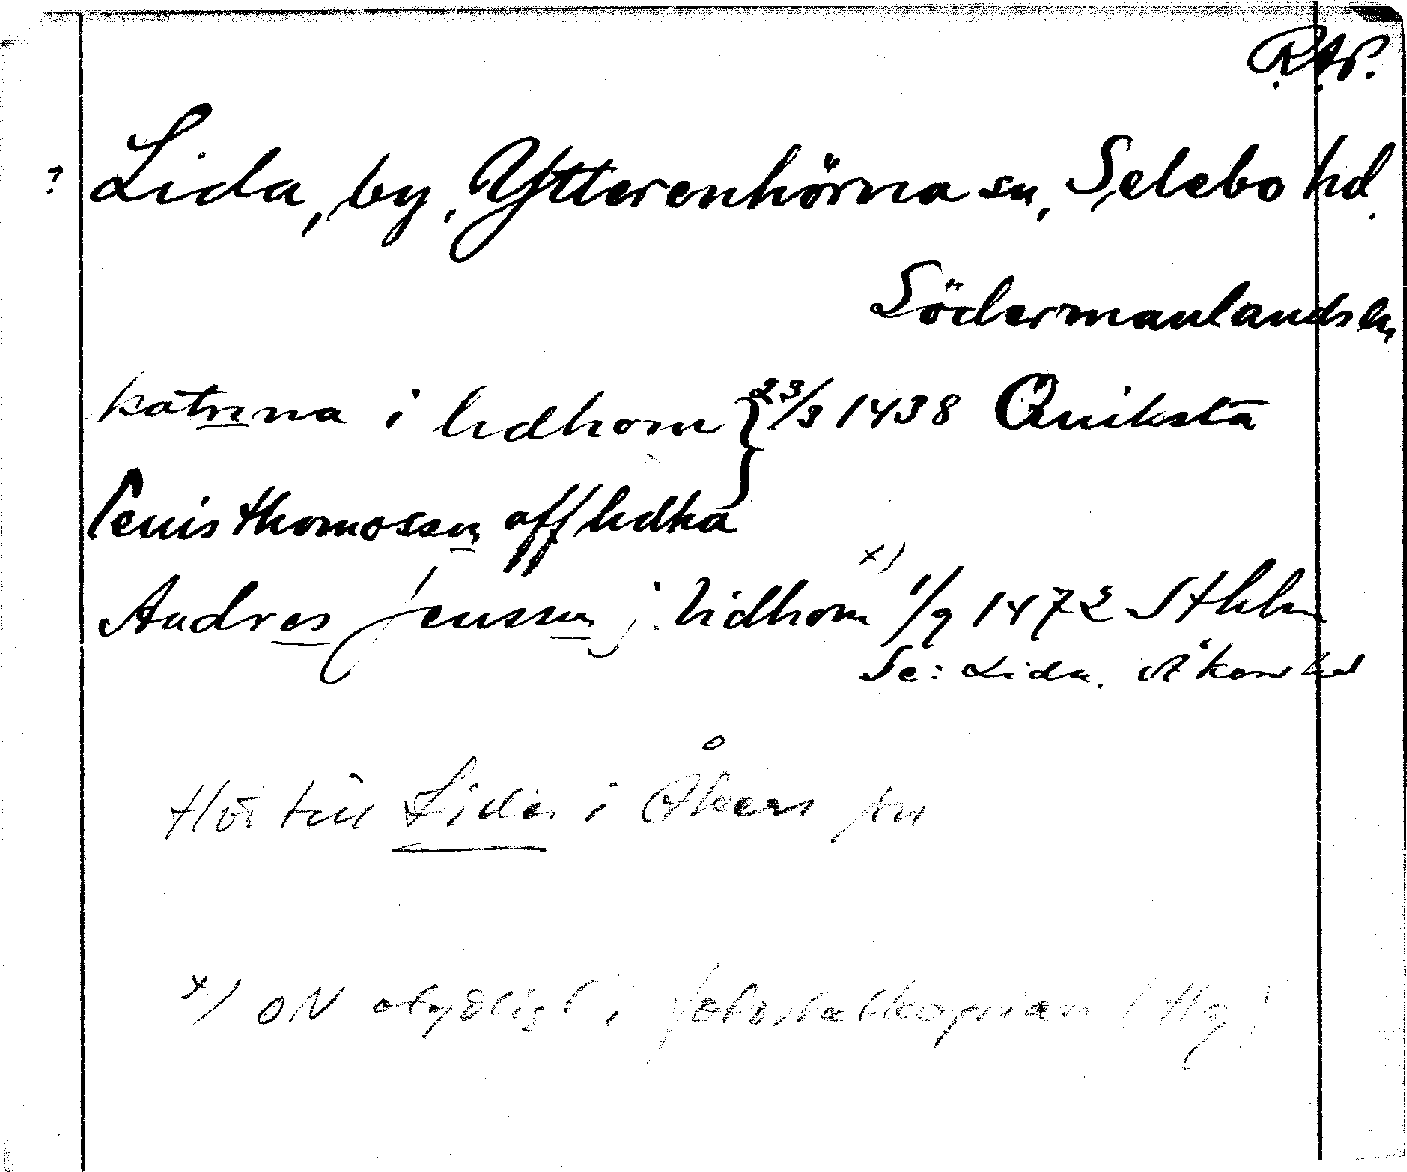 R.A.P.
? Lida, by, Ytterenhörna sn, Selebo hd.
Södermanlands ln
katrina i lidhom } 23/3 1438 Quiksta
Penis thomossun aff lidha
Andres jenssun j lidhom x) 1/9 1472 Sthlm
Se: Lida. Åkers hd
Hör till Lida i Åkers sn
x) ON otydligt i fotostatkopian (Hg)